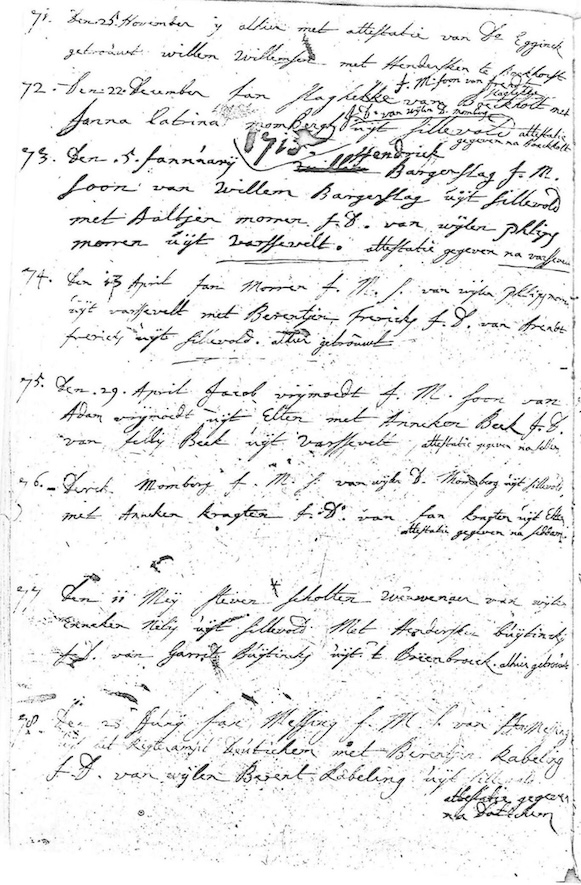 71. Den 25. November is alhier met attestatie van Ds. Egginck
getrouwt willem willemsen met Hendersken te Bockhorst
72. Den 22 December Jan Slaghekke van Bockholt met
J. M. soon van
Janna Catrina momberg J. D. van wijlen D. momberg uijt sillevold attestatie
gegeven na Bockholt
1713
73. Den 5. Jannuarij Hendrick Bargerslag J. M.
soon van willem Bargerslag uijt sillevold
met Aaltjen morren J. D. van wijlen phlips
morren uijt varssevelt. attestatie gegeven na varssevelt
74. Den 13 April Jan Morren J. M. S. van wijlen phlips morren
uijt varssevelt met Berentjen frericks J. D. van Arendt
frericks uijt sillevold. alhier getrouwt
75. Den. 29. April Jacob vrijmoedt J. M. soon van
Adam vrijmoedt uijt Elten met Anneken Beek J. D.
van Jelly Beek uijt varssevelt attestatie gegeven na Elten
76. Derck Momberg J. M. S. van wijlen D. Momberg uijt sillevold,
met Anneken kragten J. D. van Jan kragten uijt Etten
attestatie gegeven na
77 Den 11 Meij steven scholten wewenaer van wijlen
Enneken Nelis uijt sillevold Met Hendersken buijtinck
J. D. van Garrit Buijtinck uijt 't Breenbroeck. alhier getrouwt
78. Den 23 Junij Jan Messing J. M. S. van H. Messing
uijt het Deutichem met Berentjen Rabeling
J. D. van wijlen Berent Rabeling uijt sillevold
attestatie gegeven
na Dotichem